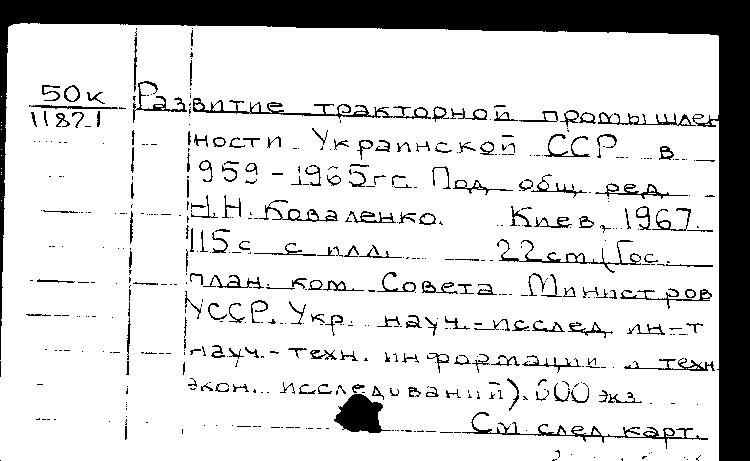 50к Развитие тракторной промышлен
11821 ности Украинской ССР в
1959-1965гг. Под общ. ред.
Н.Н. Коваленко. Киев, 1967.
115с с илл. 22см. (Гос.
план. ком. Совета Министров
УССР. Укр. науч.-исслед. ин-т
науч.-техн. информации и техн
экон. исследований). 600 экз
См след. карт.